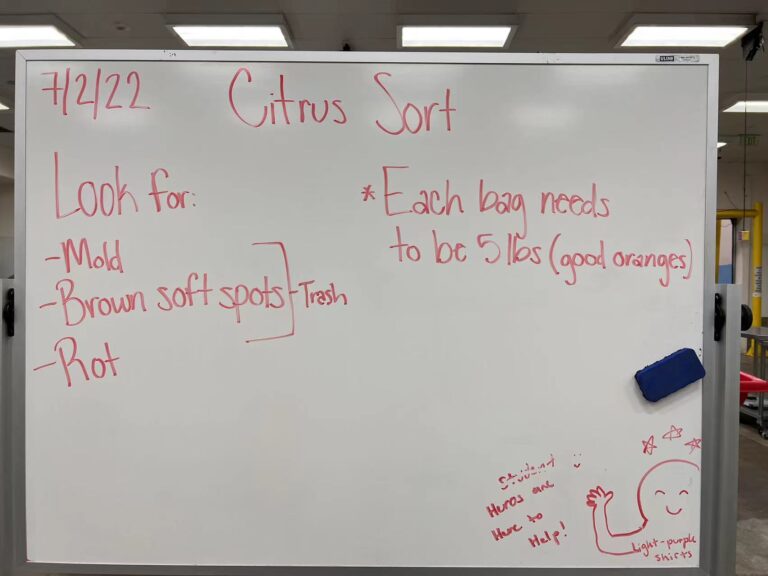 7/2/22 Citrus Sort
Look for:
- Mold
- Brown soft spots
- Rot
Trash
* Each bag needs
to be 5 lbs (good oranges)
Student
Heros are
Here to
Help!
Light-purple
shirts